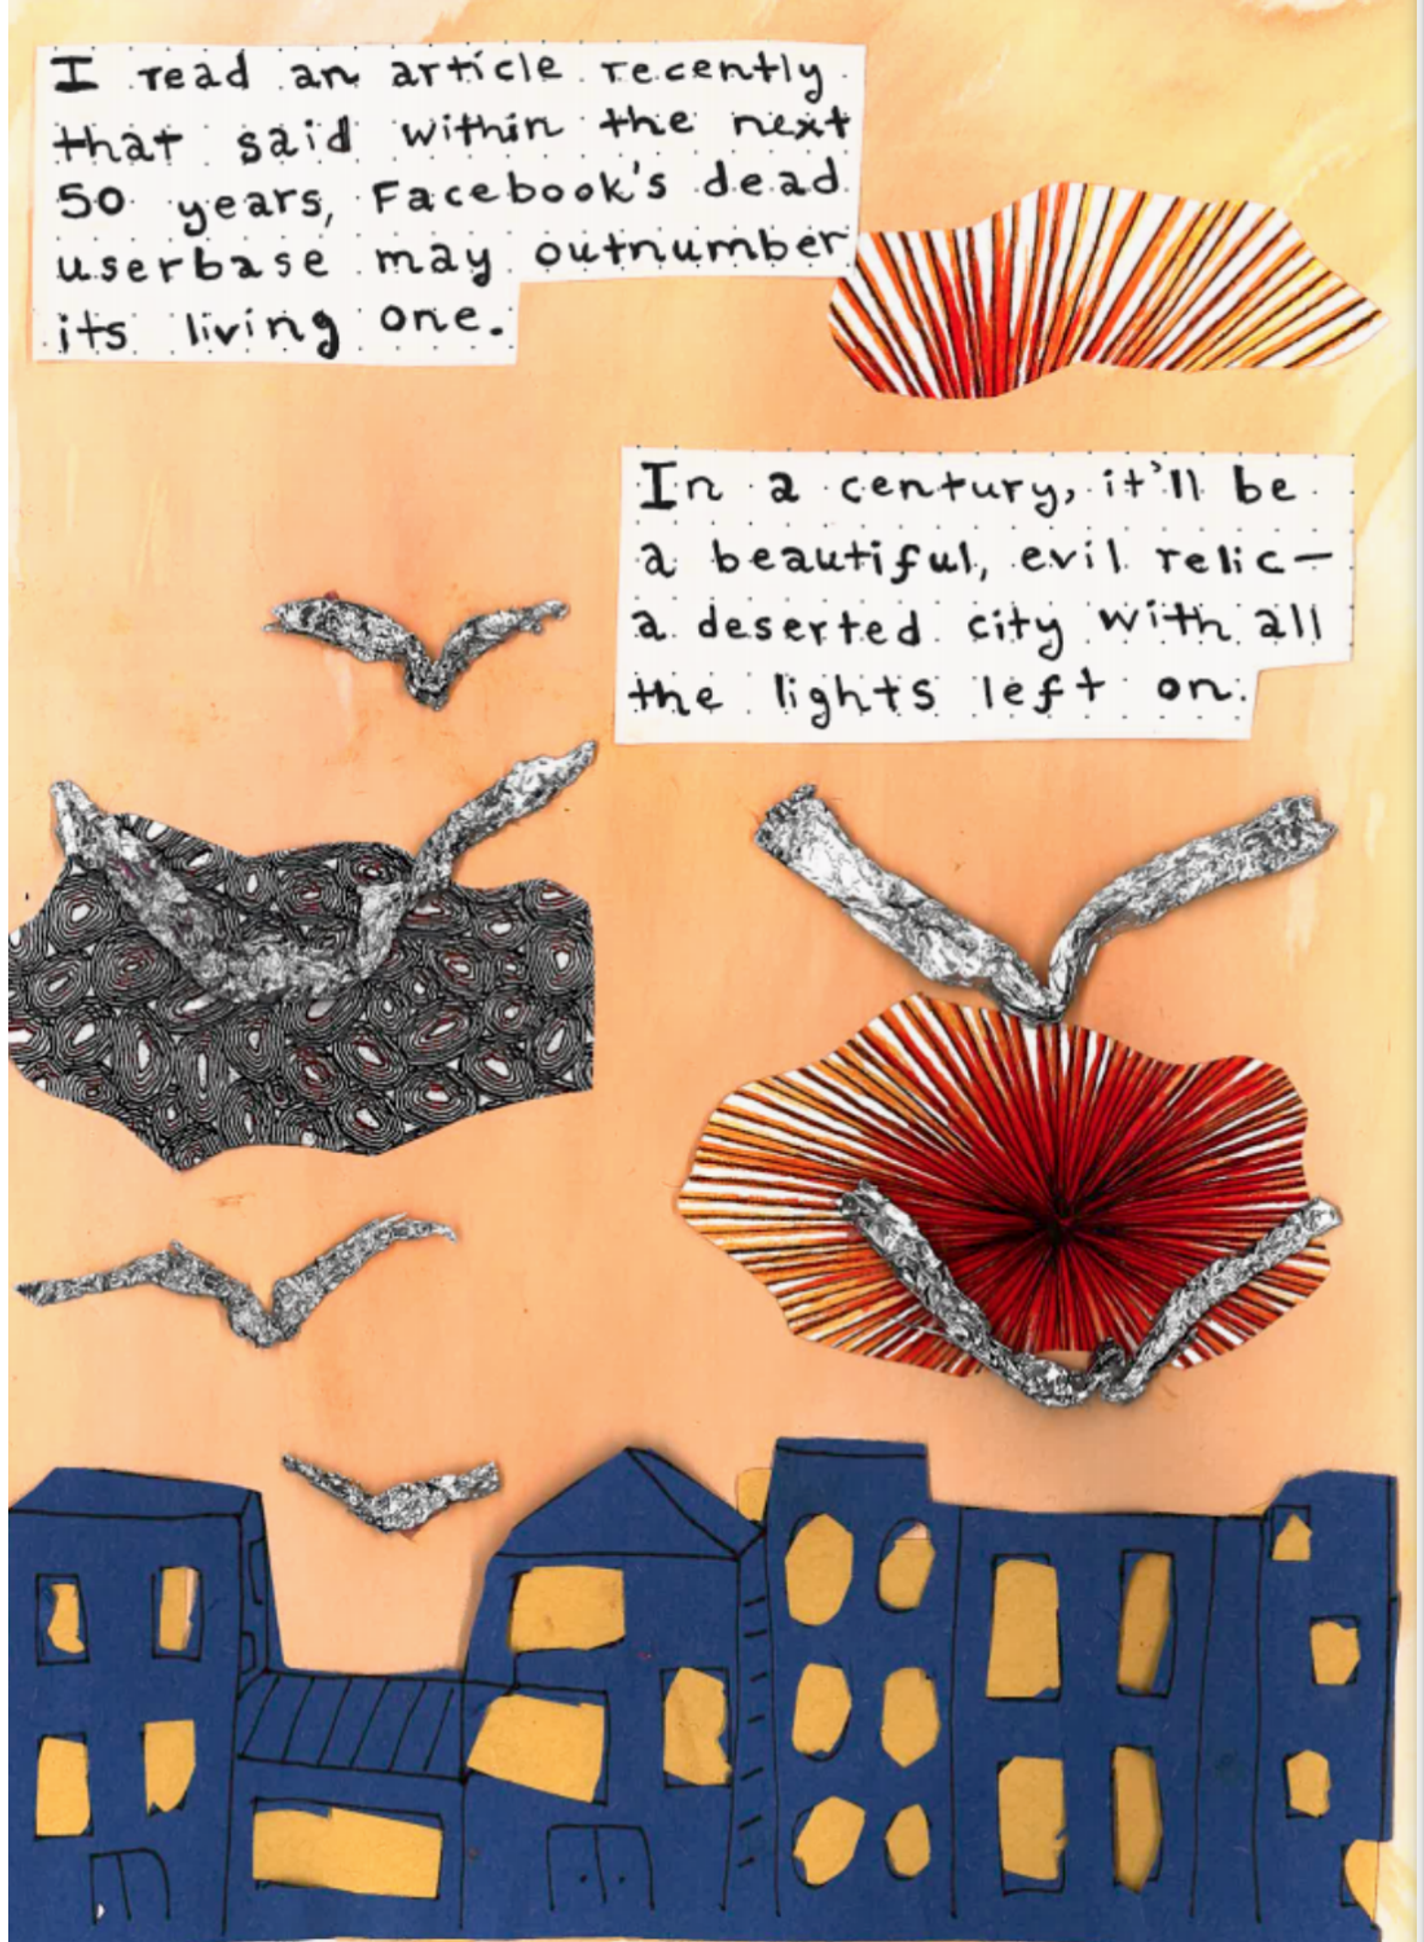 I read an article recently
that said within the next
50 years, Facebook's dead
userbase may outnumber
its living one.
In a century, it'll be
a beautiful, evil relic—
a deserted city with all
the lights left on.